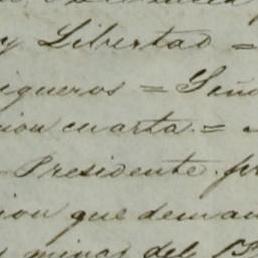 y Libertad =
iqueros = Seño
cion cuarta. =
Presidente. pr
ion que deman
y minas del P